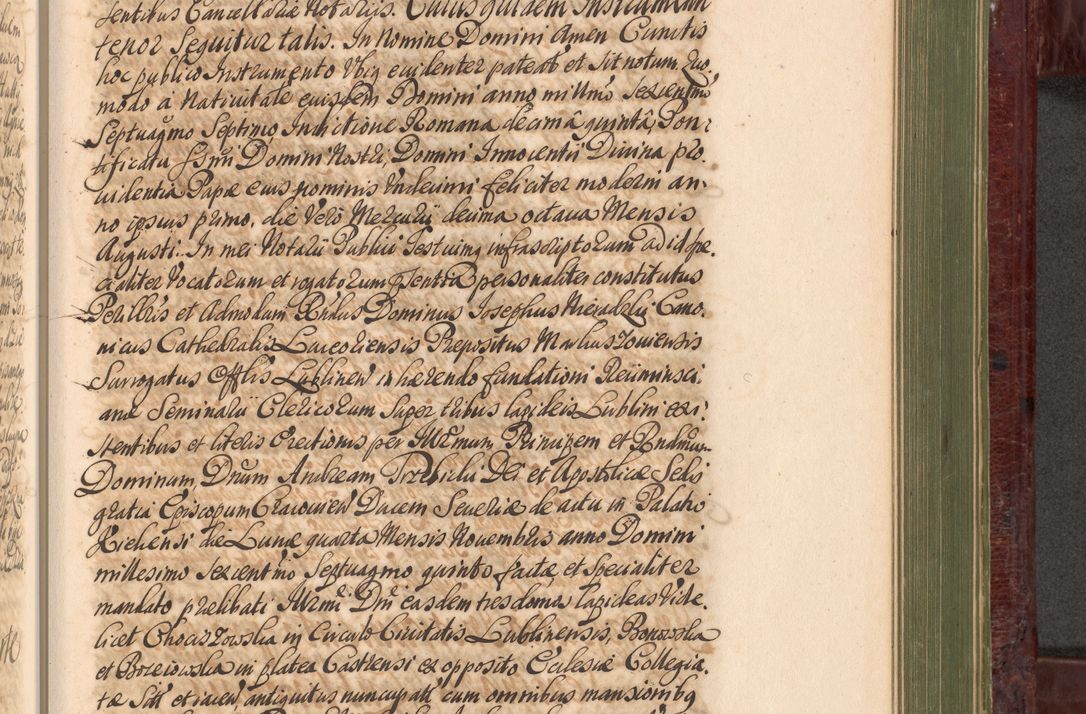 sentibus Cancellariæ Notarijs. Cuius quidem Instrumenti
tenor sequitur talis. In Nomine Domini Amen Cunctis
hoc publico Instrumento Vbiq evidenter pateat et sit notum, Quo
modo à Nativitate eiusdem Domini anno millmo sexcentmo
Septuagmo Septimo Indictione Romana decimâ quintâ, Pon:
tificatu ssmi Domini Nostri, Domini Innocentij Divina pro,
videntia Papæ eius nominis Vndecimi feliciter moderni an,
no ipsius primo, die Verò Mercurij decima octava Mensis
Augusti: In mei Notarij Publici Testiumq infrascriptorum ad id spe,
cialiter Vocatorum et rogatorum psentia personaliter constitutus
Perillris et Admodum Rndus Dominus Josephus Cano,
nicus Cathedralis Præpositus
Surrogatus Offlis Lublinen inhærendo fundationi
anæ Seminarij Clericorum super tribus lapideis Lublini exi:
stentibus et literis Erectionis per Illrmum Principem et Rndmum
Dominum Dnum Andream Trzebicki Dei et Apostolicæ Sedis
gratia Episcopum Cracovien Ducem Severiæ de actu in Palatio
Kielcensi die Lunæ quarta Mensis Novembris anno Domini
millesimo sexcentmo Septuagmo quinto factæ, et specialiter
mandato prælibati Illrmi Dni easdem tres domos lapideas Vide,
licet in Circulo Civitatis Lublinensis, Bonowska
et in platea Castrensi ex opposito Ecclesiæ Collegia,
tæ Sitt et iacen, antiquitus nuncupatt cum omnibus mansionibq